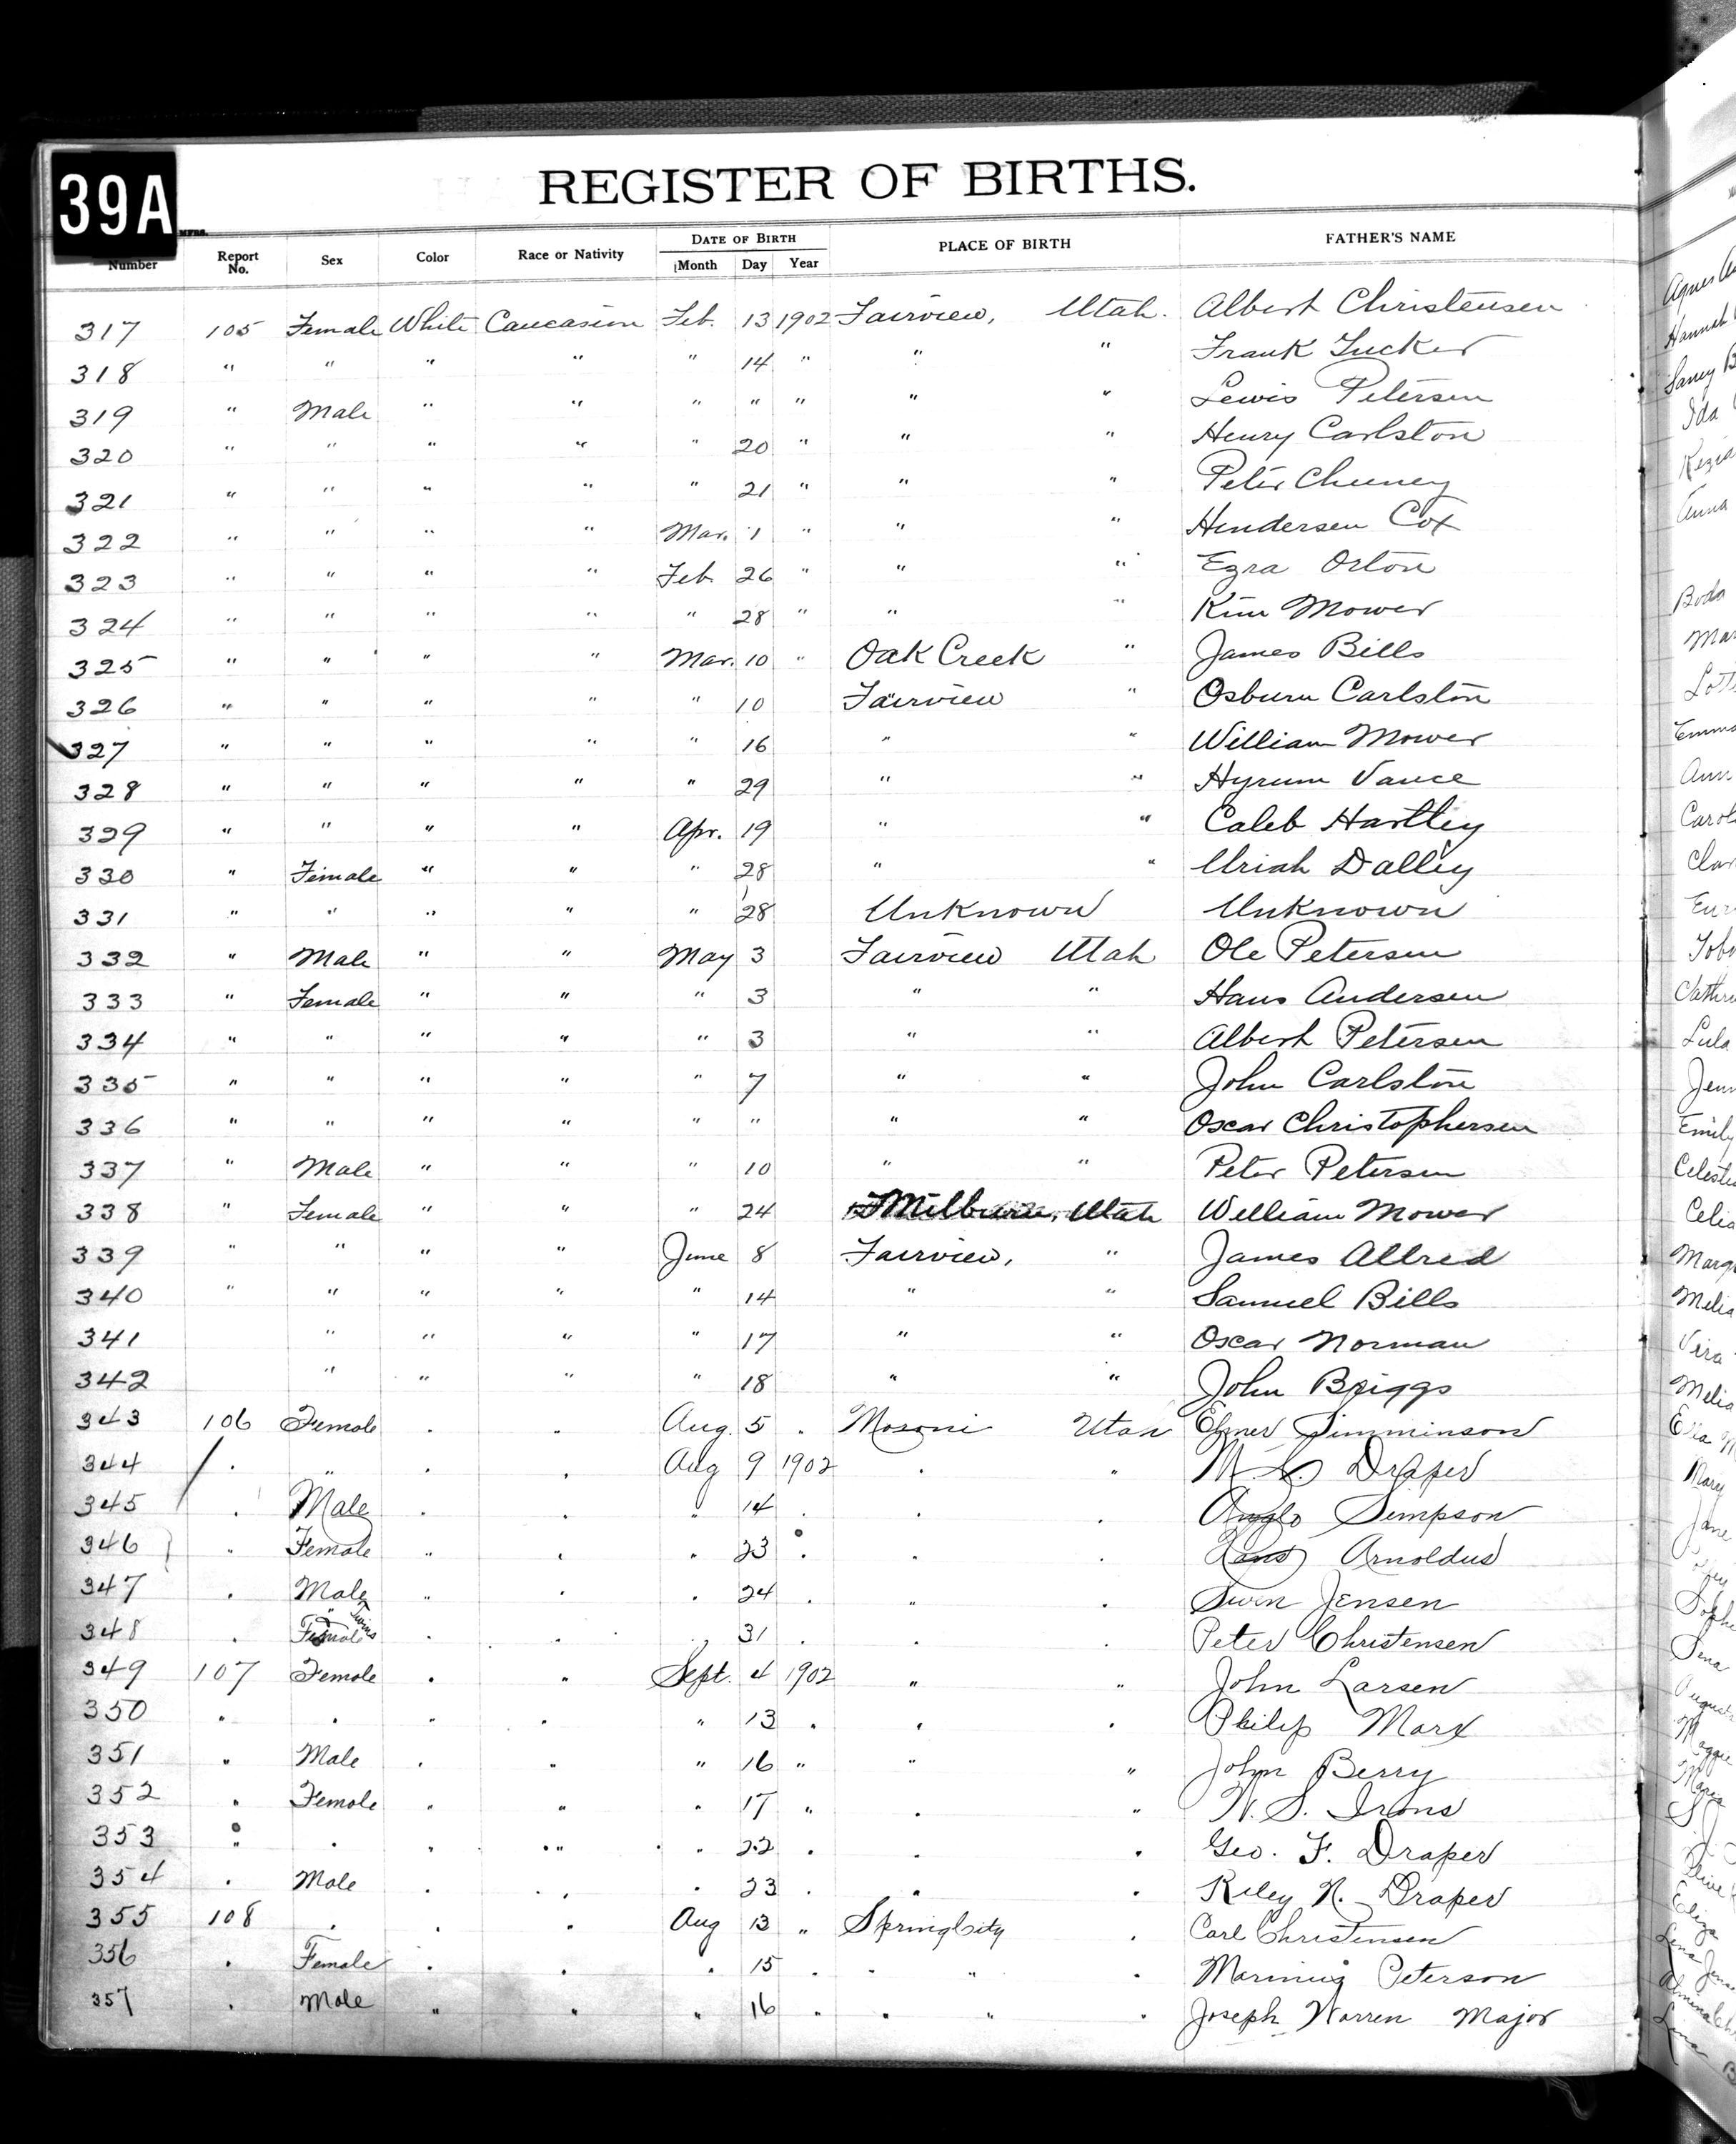 39A
REGISTER OF BIRTHS.
Number Report No. Sex Color Race or Nativity DATE OF BIRTH Month Day Year PLACE OF BIRTH FATHER'S NAME
317 105 Female White Caucasion Feb. 13 1902 Fairview, Utah. Albert Christensen
318 " " " " " 14 " " " Frank Tucker
319 " Male " " " " " " " Lewis Petersen
320 " " " " " 20 " " " Henry Carlston
321 " " " " " 21 " " " Peter Cheney
322 " " " " Mar. 1 " " " Hendersen Cox
323 " " " " Feb. 26 " " " Ezra Orton
324 " " " " " 28 " " " Kim Mower
325 " " " " Mar. 10 " Oak Creek " James Bills
326 " " " " " 10 Fairview " Osburn Carlston
327 " " " " " 16 " " William Mower
328 " " " " " 29 " " Hyrum Vance
329 " " " " Apr. 19 " " Caleb Hartley
330 " Female " " " 28 " " Uriah Dalley
331 " " " " " 28 Unknown Unknown
332 " Male " " May 3 Fairview Utah Ole Petersen
333 " Female " " " 3 " " Hans Andersen
334 " " " " " 3 " " Albert Petersen
335 " " " " " 7 " " John Carlston
336 " " " " " " " " Oscar Christophersen
337 " Male " " " 10 " " Peter Petersen
338 " Female " " " 24 Milburn, Utah William Mower
339 " " " " June 8 Fairview, " James Allred
340 " " " " " 14 " " Samuel Bills
341 " " " " 17 " " Oscar Norman
342 " " " " 18 " " John Briggs
343 106 Female . . Aug. 5 . Moroni Utah Elmer Simminson
344 . " . . Aug 9 1902 . " Draper
345 . Male . . " 14 . . . Simpson
346 " Female " . " 23 . . . Arnoldus
347 . Male " . . 24 . " . Swen Jensen
348 . Female twins . . " 31 . . . Peter Christensen
349 107 Female . " Sept. 4 1902 " " John Larsen
350 " . " . " 13 . . . Philip Marx
351 " Male . . " 16 " " " John Berry
352 . Female . " . 17 " . " N. S. Irons
353 " . . " . 22 . . . Geo. F. Draper
354 . Male . . . 23 . . . Riley N. Draper
355 108 . . . Aug 13 " Spring City . Carl Christensen
356 . Female . . . 15 . . " . Peterson
357 . Male " " " 16 . . " . Joseph Warren Major